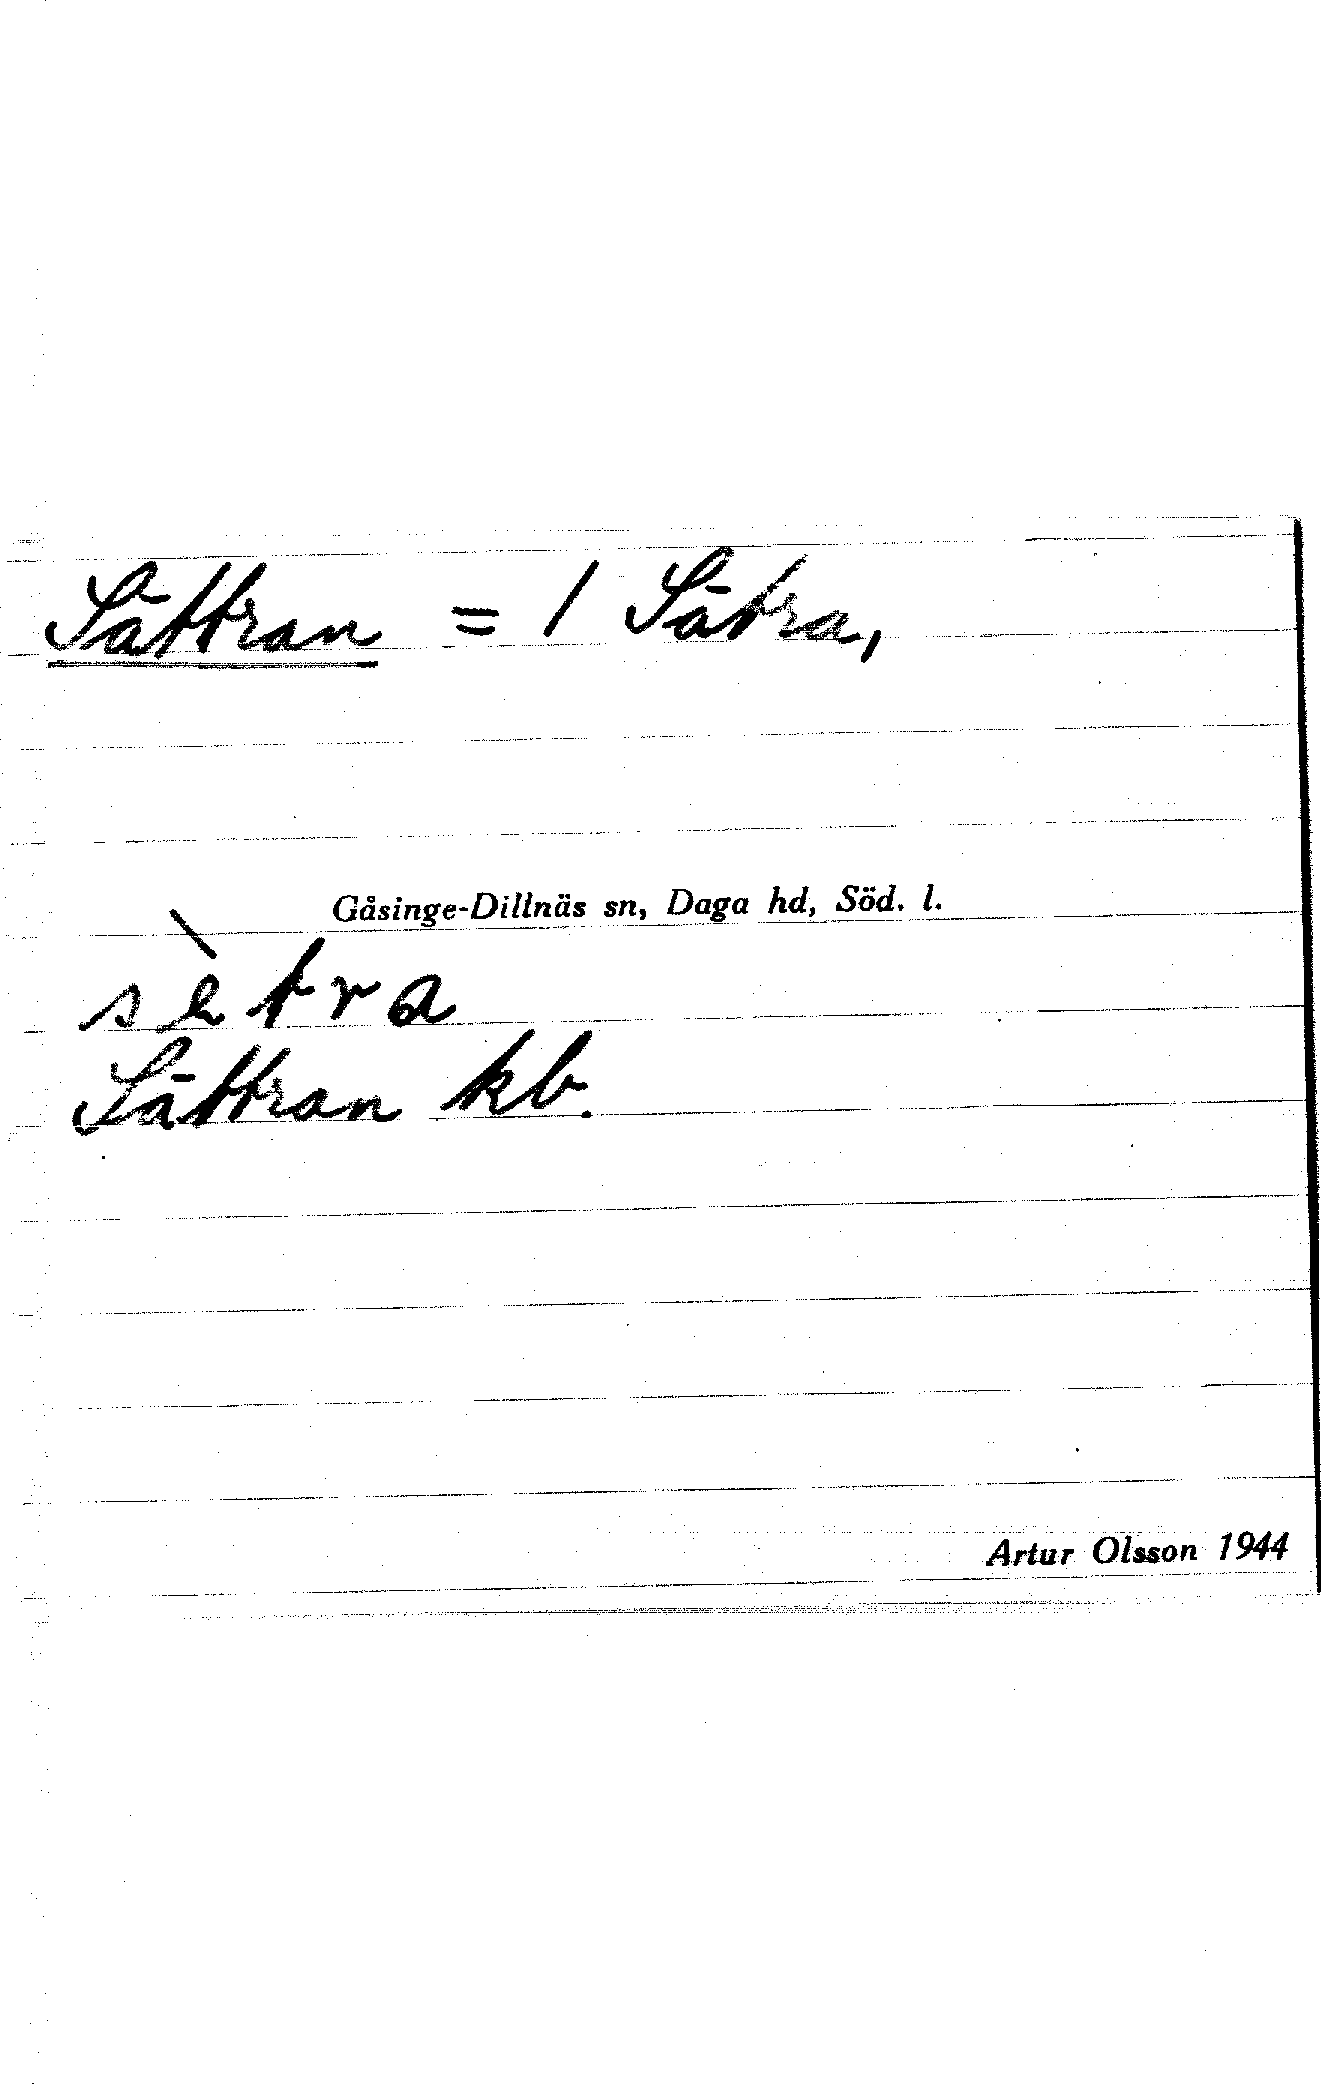 Sättran = 1 Sätra,
Gåsinge-Dillnäs sn, Daga hd, Söd. l.
sὰtra
Sättran kb.
Artur Olsson 1944